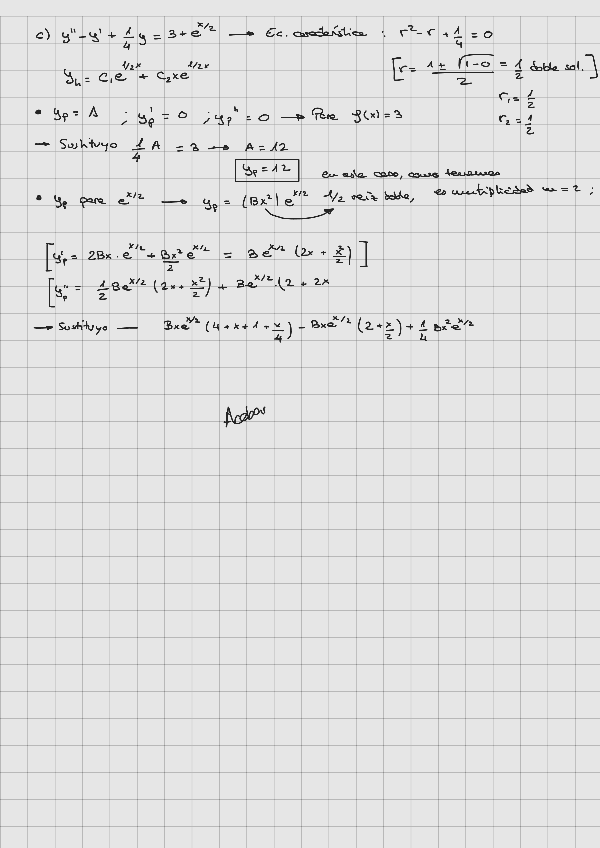 c) y'' - y' + 1/4 y = 3 + e^{x/2} → Ec. característica : r² - r + 1/4 = 0
y_h = C₁e^{1/2x} + C₂xe^{1/2x} [r = (1 ± √(1-0))/2 = 1/2 doble sol.]
r₁ = 1/2
r₂ = 1/2
• y_p = A ; y_p' = 0 ; y_p'' = 0 → Para f(x) = 3
→ Sustituyo 1/4 A = 3 → A = 12
y_p = 12
en este caso, como tenemos
• y_p para e^{x/2} → y_p = (Bx²) e^{x/2} 1/2 raiz doble, es multiplicidad m = 2 ;
[y_p' = 2Bx · e^{x/2} + Bx²/2 e^{x/2} = B e^{x/2} (2x + x²/2)]
[y_p'' = 1/2 Be^{x/2} (2x + x²/2) + Be^{x/2} · (2 + 2x
→ Sustituyo — Bxe^{x/2} (4 + x + 1 + x/4) - Bxe^{x/2} (2 + x/2) + 1/4 Bx² e^{x/2}